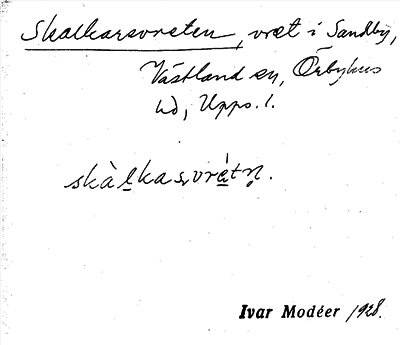 Skalkarsvreten, vret i Sandby,
Västland sn, Örbyhus
hd, Upps. l.
skàl̠kasˌvrét̠n̥.
Ivar Modéer 1928.